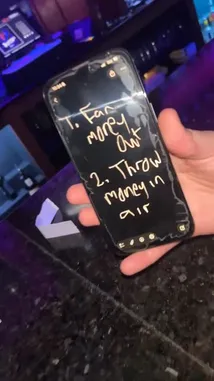 1. Fan
money
out
2. Throw
money in
air